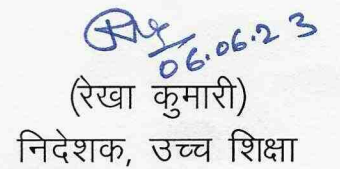 06.06.23
(रेखा कुमारी)
निदेशक, उच्च शिक्षा